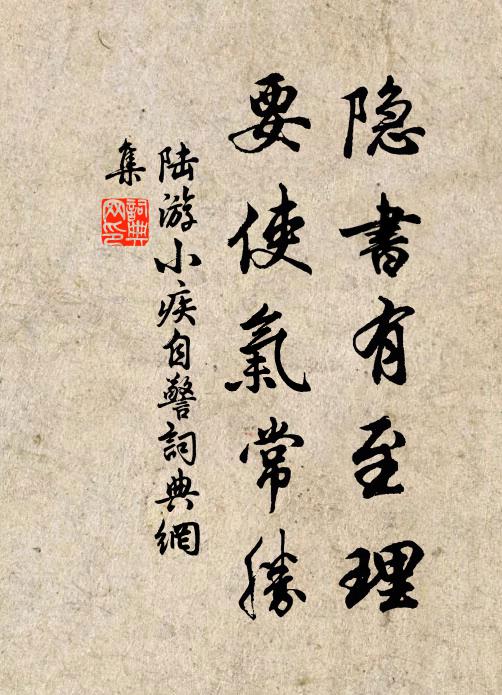 隐書有至理
要使氣常勝
陆游小疾自警詞典網
集
詞典
网印